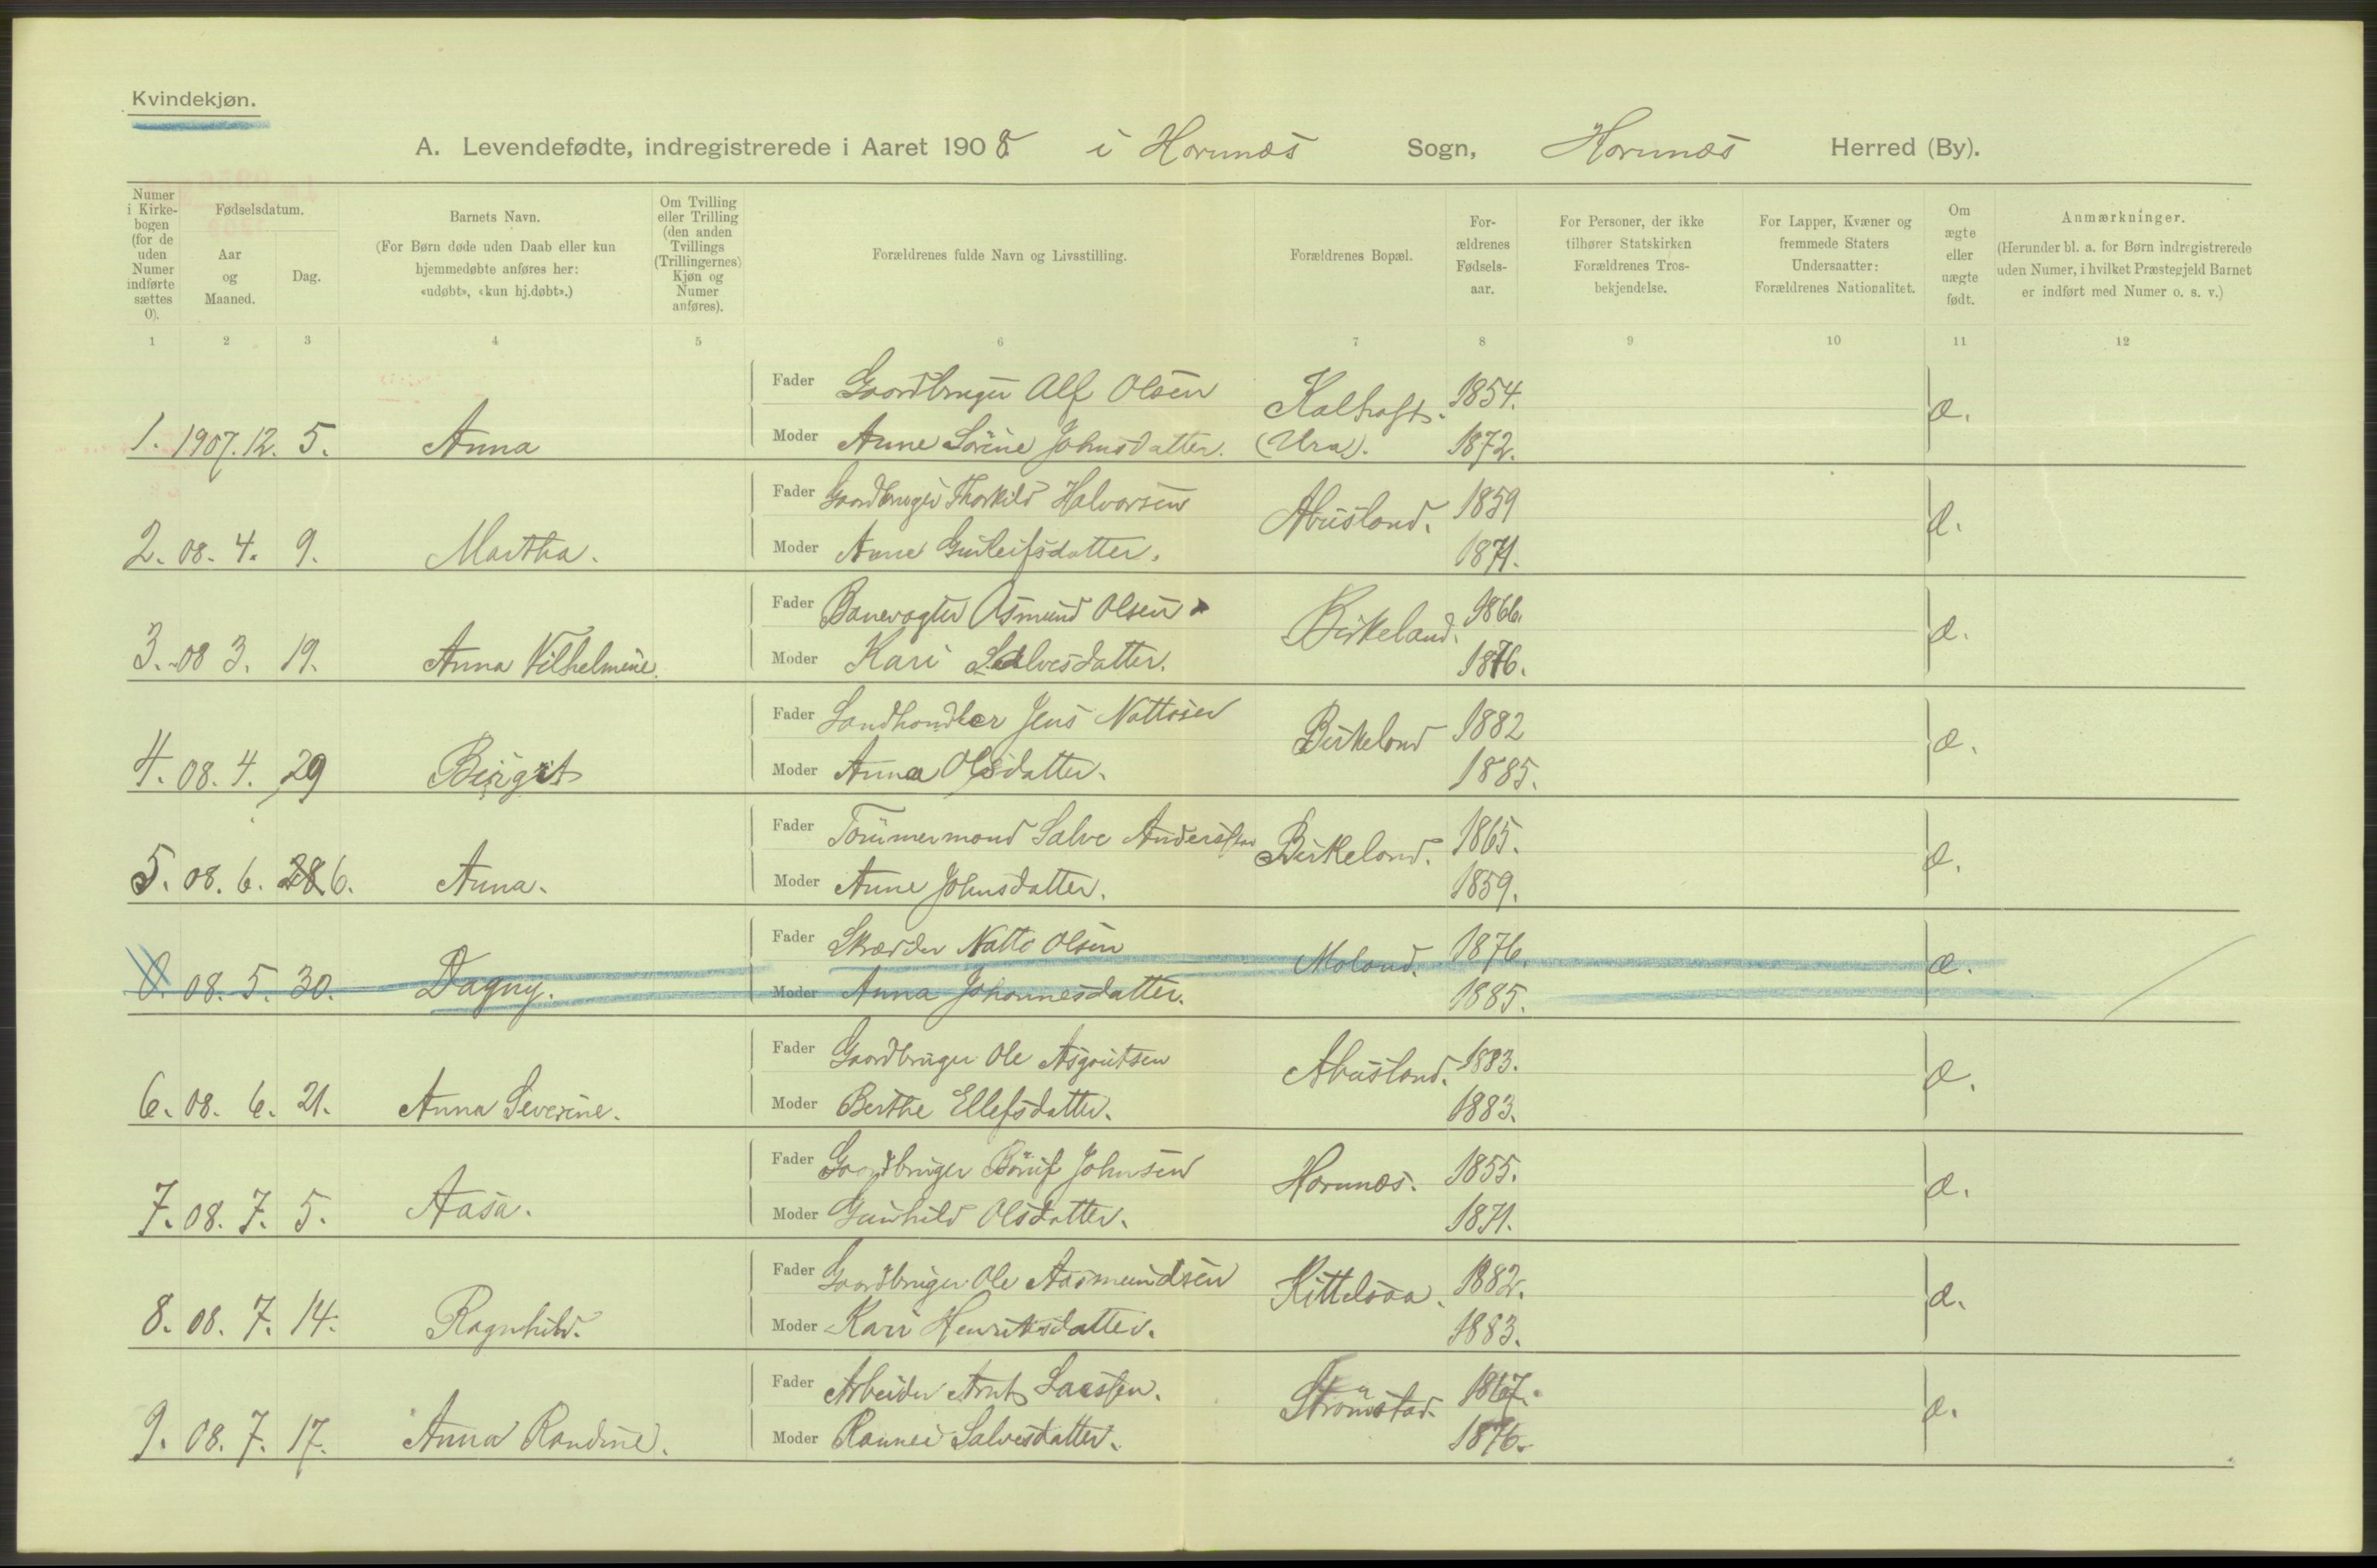 Kvindekjøn.
A. Levendefødte, indregistrerede i Aaret 1908 i Hornnæs Sogn, Hornnæs Herred (By).
Numer i Kirkebogen (for de uden Numer indførte sættes 0).
Fødselsdatum.
Aar og Maaned.
Dag.
Barnets Navn.
(For Børn døde uden Daab eller kun hjemmedøbte anføres her: «udøbt», «kun hj.døbt».)
Om Tvilling eller Trilling (den anden Tvillings (Trillingernes) Kjøn og Numer anføres).
Forældrenes fulde Navn og Livsstilling.
Forældrenes Bopæl.
Forældrenes Fødselsaar.
For Personer, der ikke tilhører Statskirken Forældrenes Trosbekjendelse.
For Lapper, Kvæner og fremmede Staters Undersaatter: Forældrenes Nationalitet.
Om ægte eller uægte født.
Anmærkninger.
(Herunder bl. a. for Børn indregistrerede uden Numer, i hvilket Præstegjeld Barnet er indført med Numer o. s. v.)
1 2 3 4 5 6 7 8 9 10 11 12
Fader Gaardbruger Alf Olsen Kalhaft. 1854. æ.
1. 1907. 12. 5. Anna Moder Anne Sørine Johnsdatter. (Ura). 1872.
Fader Gaardbruger Thorkild Halvorsen Abusland. 1859 æ.
2. 08. 4. 9. Martha. Moder Anne Gunleifsdatter. 1871.
Fader Banevogter Asmund Olsen Birkeland. 1866. æ.
3. 08 3. 19. Anna Vilhelmine. Moder Kari Salvesdatter. 1876.
Fader Landhandler Jens Nattosen Birkeland 1882 æ.
4. 08. 4. 29 Birgit Moder Anna Olsdatter. 1885.
Fader Tømmermand Salve Anderssen Birkeland. 1865. æ.
5. 08. 6. 28 6. Anna. Moder Anne Johnsdatter. 1859.
Fader Skrædder Natto Olsen Moland. 1876. æ.
0. 08. 5. 30. Dagny. Moder Anna Johannesdatter. 1885.
Fader Gaardbruger Ole Asgoutsen Abusland. 1883. æ.
6. 08. 6. 21. Anna Severine. Moder Berthe Ellefsdatter. 1883.
Fader Gaardbruger Johnsen Hornnæs. 1855. æ.
7. 08. 7. 5. Aasa. Moder Gunhild Olsdatter. 1871.
Fader Gaardbruger Ole Aasmundsen Kittelsaa. 1882. æ.
8. 08. 7. 14. Ragnhild. Moder Kari Henriksdatter. 1883.
Fader Arbeider Arnt Larssen. Strømstad. 1867. æ.
9. 08. 7. 17. Anna Randine. Moder Rannei Salvesdatter. 1876.